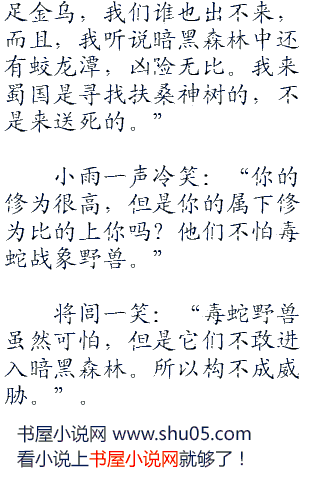 足金乌，我们谁也出不来，
而且，我听说暗黑森林中还
有蛟龙潭，凶险无比。我来
蜀国是寻找扶桑神树的，不
是来送死的。”
小雨一声冷笑：“你的
修为很高，但是你的属下修
为比的上你吗？他们不怕毒
蛇战象野兽。”
将闾一笑：“毒蛇野兽
虽然可怕，但是它们不敢进
入暗黑森林。所以构不成威
胁。”。
书屋小说网 www.shu05.com
看小说上书屋小说网就够了！